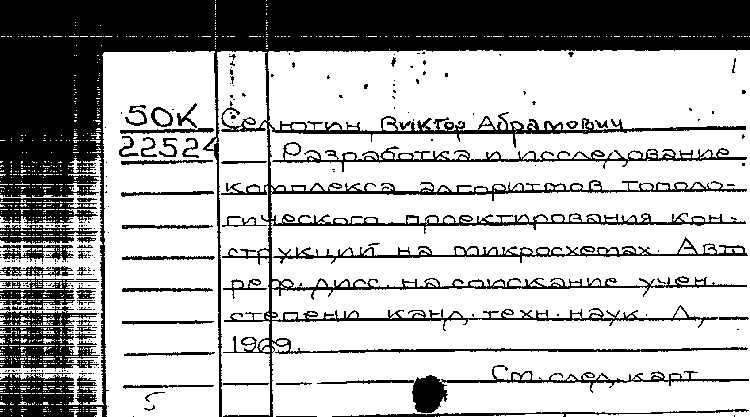 50К Селютин Виктор Абрамович
22524 Разработка и исследование
комплекса алгоритмов тополо-
гического проектирования кон-
струкций на микросхемах. Авто
реф. дисс. на соискание учен.
степени канд. техн. наук. Л,
1969.
См. след. карт
5